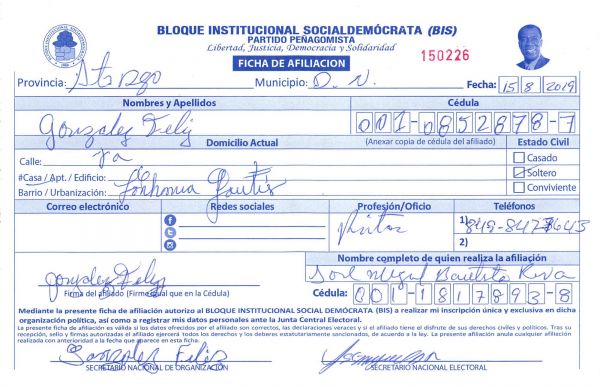 BLOQUE INSTITUCIONAL SOCIALDEMÓCRATA (BIS)
PARTIDO PEÑAGOMISTA
Libertad, Justicia, Democracia y Solidaridad
FICHA DE AFILIACION
150226
Provincia: Sto Dgo Municipio: D. N. Fecha: 15 8 2019
Nombres y Apellidos Cédula
Gonzalez Feliz 001-0852878-7
Domicilio Actual (Anexar copia de cédula del afiliado) Estado Civil
Calle: Casado
#Casa / Apt. / Edificio: Soltero
Barrio / Urbanización: Conviviente
Correo electrónico Redes sociales Profesión/Oficio Teléfonos
Pintor 1) 849-847-7643
2)
Nombre completo de quien realiza la afiliación
Gonzalez Feliz Jose Miguel Bautista
Firma del afiliado (Firma igual que en la Cédula) Cédula: 001-1817893-8
Mediante la presente ficha de afiliación autorizo al BLOQUE INSTITUCIONAL SOCIAL DEMÓCRATA (BIS) a realizar mi inscripción única y exclusiva en dicha
organización política, así como a registrar mis datos personales ante la Junta Central Electoral.
La presente ficha de afiliación es válida si los datos ofrecidos por el afiliado son correctos, las declaraciones veraces y si el afiliado tiene el disfrute de sus derechos civiles y políticos. Tras su
recepción, sello y firmas autorizadas el afiliado ejercerá todos los derechos y los deberes estatutariamente sancionados, de acuerdo a la ley. La presente afiliación anula cualquier afiliación
realizada con anterioridad a la fecha que aparece en esta ficha.
Gonzalez Feliz
SECRETARIO NACIONAL DE ORGANIZACIÓN SECRETARIO NACIONAL ELECTORAL